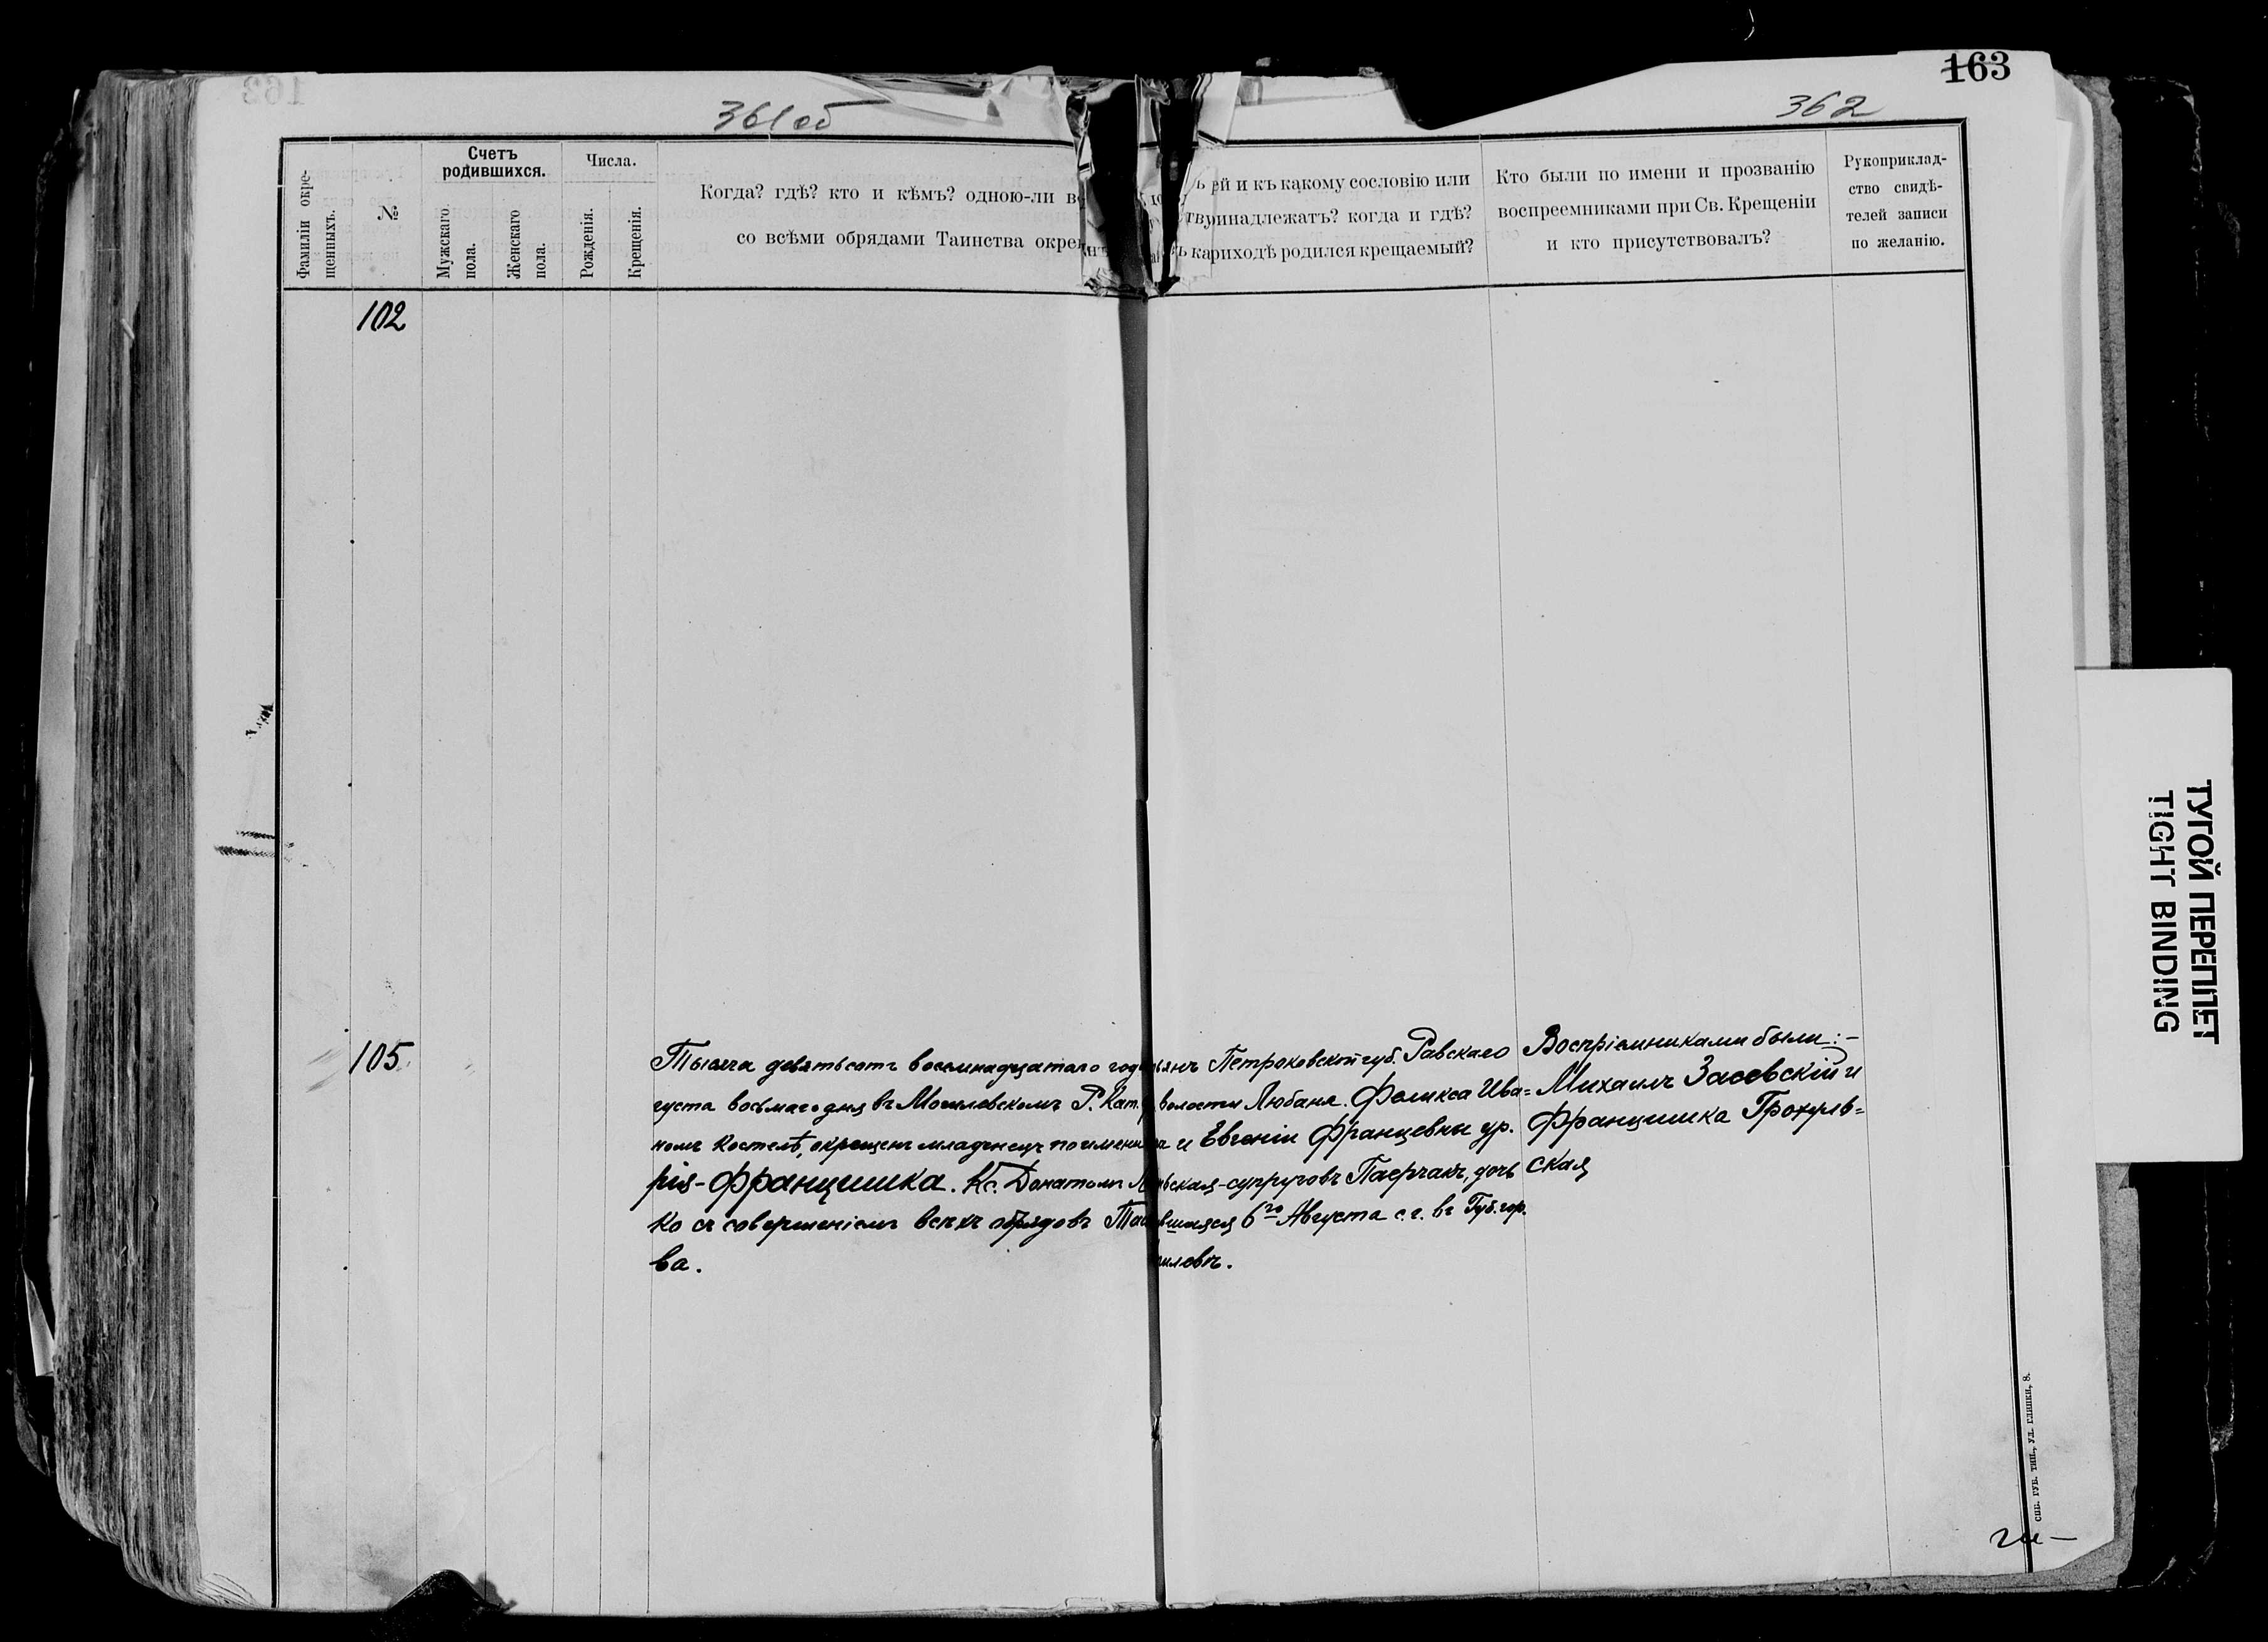 163
361 об
362
Фамиліи окре-
щенныхъ.
№
Счетъ
родившихся.
Мужскаго
пола.
Женскаго
пола.
Числа.
Рожденія.
Крещенія.
Когда? гдѣ? кто и кѣмъ? одною-ли в
со всѣми обрядами Таинства окре
ей и къ какому сословію или
принадлежатъ? когда и гдѣ?
приходѣ родился крещаемый?
Кто были по имени и прозванію
воспреемниками при Св. Крещеніи
и кто присутствовалъ?
Рукоприклад-
ство свидѣ-
телей записи
по желанію.
102
105
Тысяча девятьсотъ восемнадцатаго год
густа восьмаго дня въ Могилевскомъ Р. Кат.
номъ костелѣ, окрещенъ младенецъ по имени
рія-Францишка. Кс. Донатомъ
ко съ совершеніемъ всѣхъ обрядовъ Таи
ва.
янъ Петроковской губ. Равскаго
волости Любаня. Феликса Ива=
и Евгеніи Францевны ур.
вская-супруговъ Пасрчакъ, дочь
вшаяся 6го Августа с. г. въ Губ. гор.
илевѣ.
Воспріемниками были:-
Михаилъ Засевскій и
Францишка Грохуль=
ская
СПБ. ГУБ. ТИП., УЛ. ГЛИНКИ, 8.
ТУГОЙ ПЕРЕПЛЕТ
TIGHT BINDING